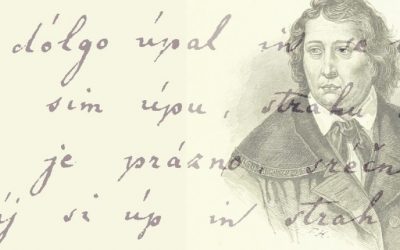 dólgo úpal in se
sim úpu, strahu
je prázno, sréčn
si úp in strah